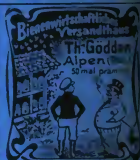 Bienenwirtschaftliches
Versandthaus
Th. Gödden
Alpen
50 mal präm